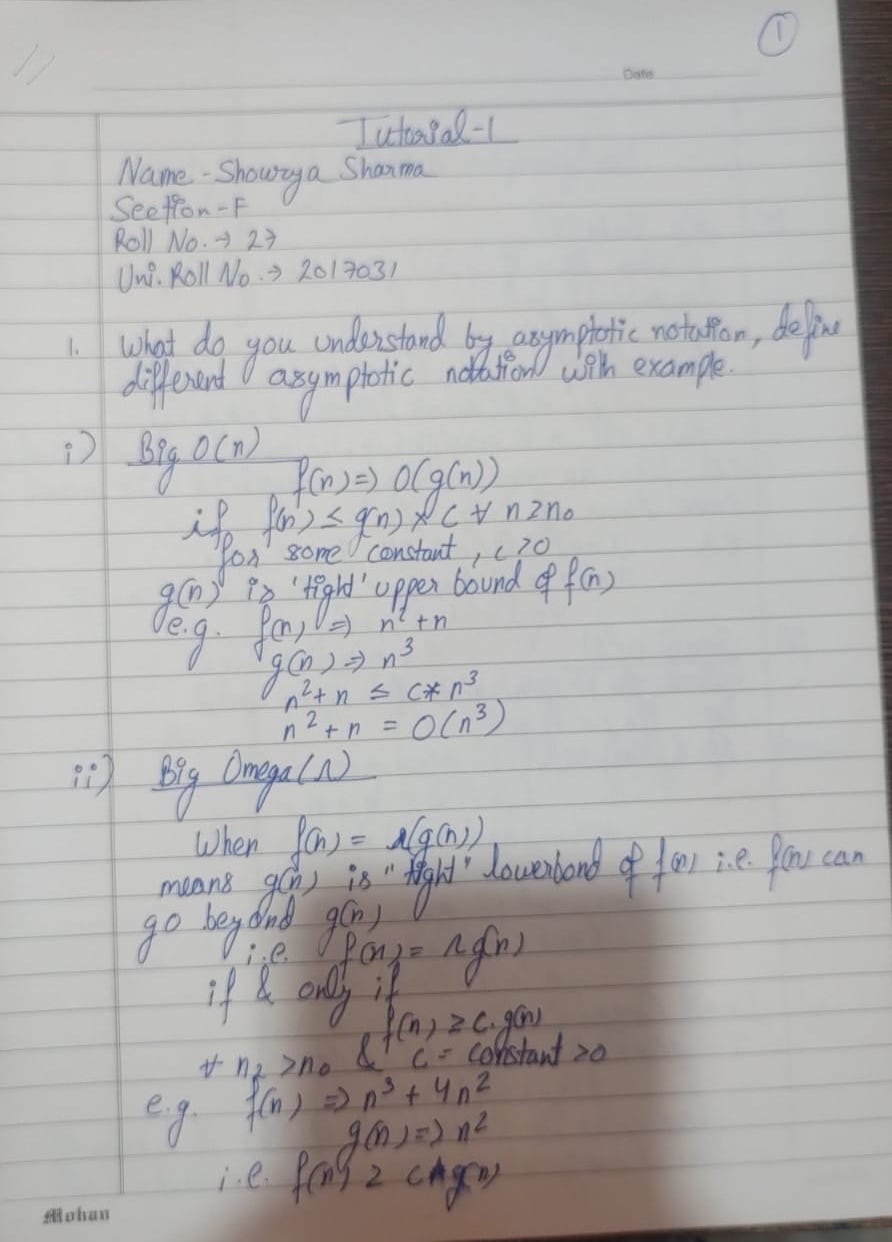 1
Date
Tutorial-1
Name - Showrya Sharma
Section-F
Roll No. → 27
Uni. Roll No. → 2017031
1. What do you understand by asymptotic notation, define
different asymptotic notation with example.
i) Big O(n)
f(n) => O(g(n))
if f(n) ≤ g(n) * c ∀ n≥n₀
for some constant, c>0
g(n) is 'tight' upper bound of f(n)
e.g. f(n) => n²+n
g(n) => n³
n²+n ≤ c*n³
n²+n = O(n³)
ii) Big Omega (Ω)
When f(n) = Ω(g(n))
means g(n) is "tight" lowerbond of f(n) i.e. f(n) can
go beyond g(n)
i.e. f(n) = Ω g(n)
if & only if
f(n) ≥ c.g(n)
∀ n₂ >n₀ & c = constant >0
e.g. f(n) => n³+4n²
g(n) => n²
i.e. f(n) ≥ c*g(n)
Mohan